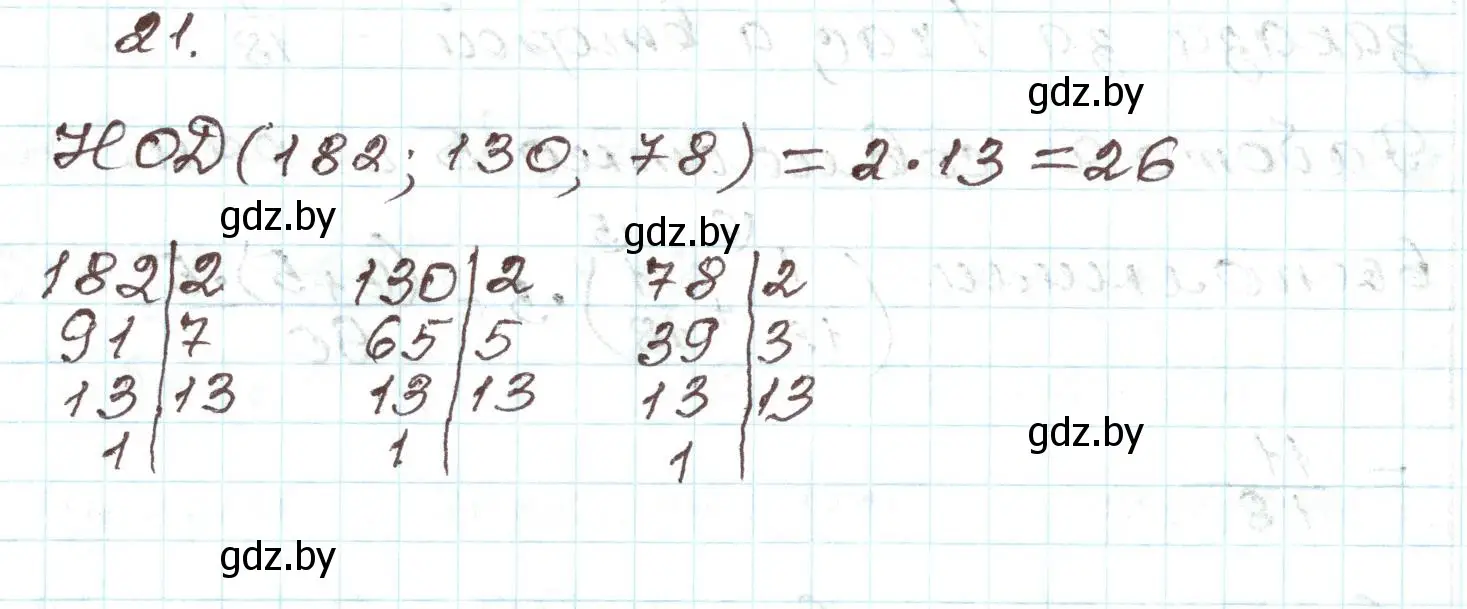 21.
gdz.by
НОД(182; 130; 78) = 2·13 = 26
gdz.by
gdz.by
182|2 130|2 78|2
91|7 65|5 39|3
13|13 13|13 13|13
1| 1| 1|
gdz.by
gdz.by